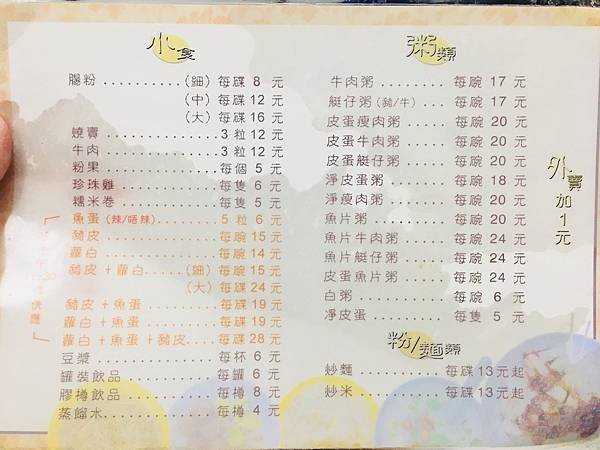 小食
腸粉 ..........(細) 每碟 8 元
(中) 每碟 12 元
(大) 每碟 16 元
燒賣 ............... 3 粒 12 元
牛肉 ............... 3 粒 12 元
粉果 ............... 每個 5 元
珍珠雞 ............. 每隻 6 元
糯米卷 ............. 每隻 5 元
魚蛋 (辣/唔辣) ........ 5 粒 6 元
豬皮 ............... 每碗 15 元
蘿白 ............... 每碗 14 元
豬皮 + 蘿白.....(細) 每碗 15 元
(大) 每碟 24 元
豬皮 + 魚蛋 ........ 每碟 19 元
蘿白 + 魚蛋 ........ 每碟 19 元
蘿白 + 魚蛋 + 豬皮.... 每碟 28 元
豆漿 ............... 每杯 6 元
罐裝飲品 ........... 每罐 6 元
膠樽飲品 ........... 每樽 8 元
蒸餾水.............. 每樽 4 元
粥類
牛肉粥 ........... 每碗 17 元
艇仔粥 (豬/牛) ... 每碗 17 元
皮蛋瘦肉粥 ....... 每碗 20 元
皮蛋牛肉粥 ....... 每碗 20 元
皮蛋艇仔粥 ....... 每碗 20 元
淨皮蛋粥 ......... 每碗 18 元
淨瘦肉粥 ......... 每碗 20 元
魚片粥 ........... 每碗 20 元
魚片牛肉粥 ....... 每碗 24 元
魚片艇仔粥 ....... 每碗 24 元
皮蛋魚片粥 ....... 每碗 24 元
白粥 ............. 每碗 6 元
淨皮蛋 ........... 每隻 5 元
外賣加1元
粉/麵類
炒麵 ............. 每碟 13元起
炒米 ............. 每碟 13元起